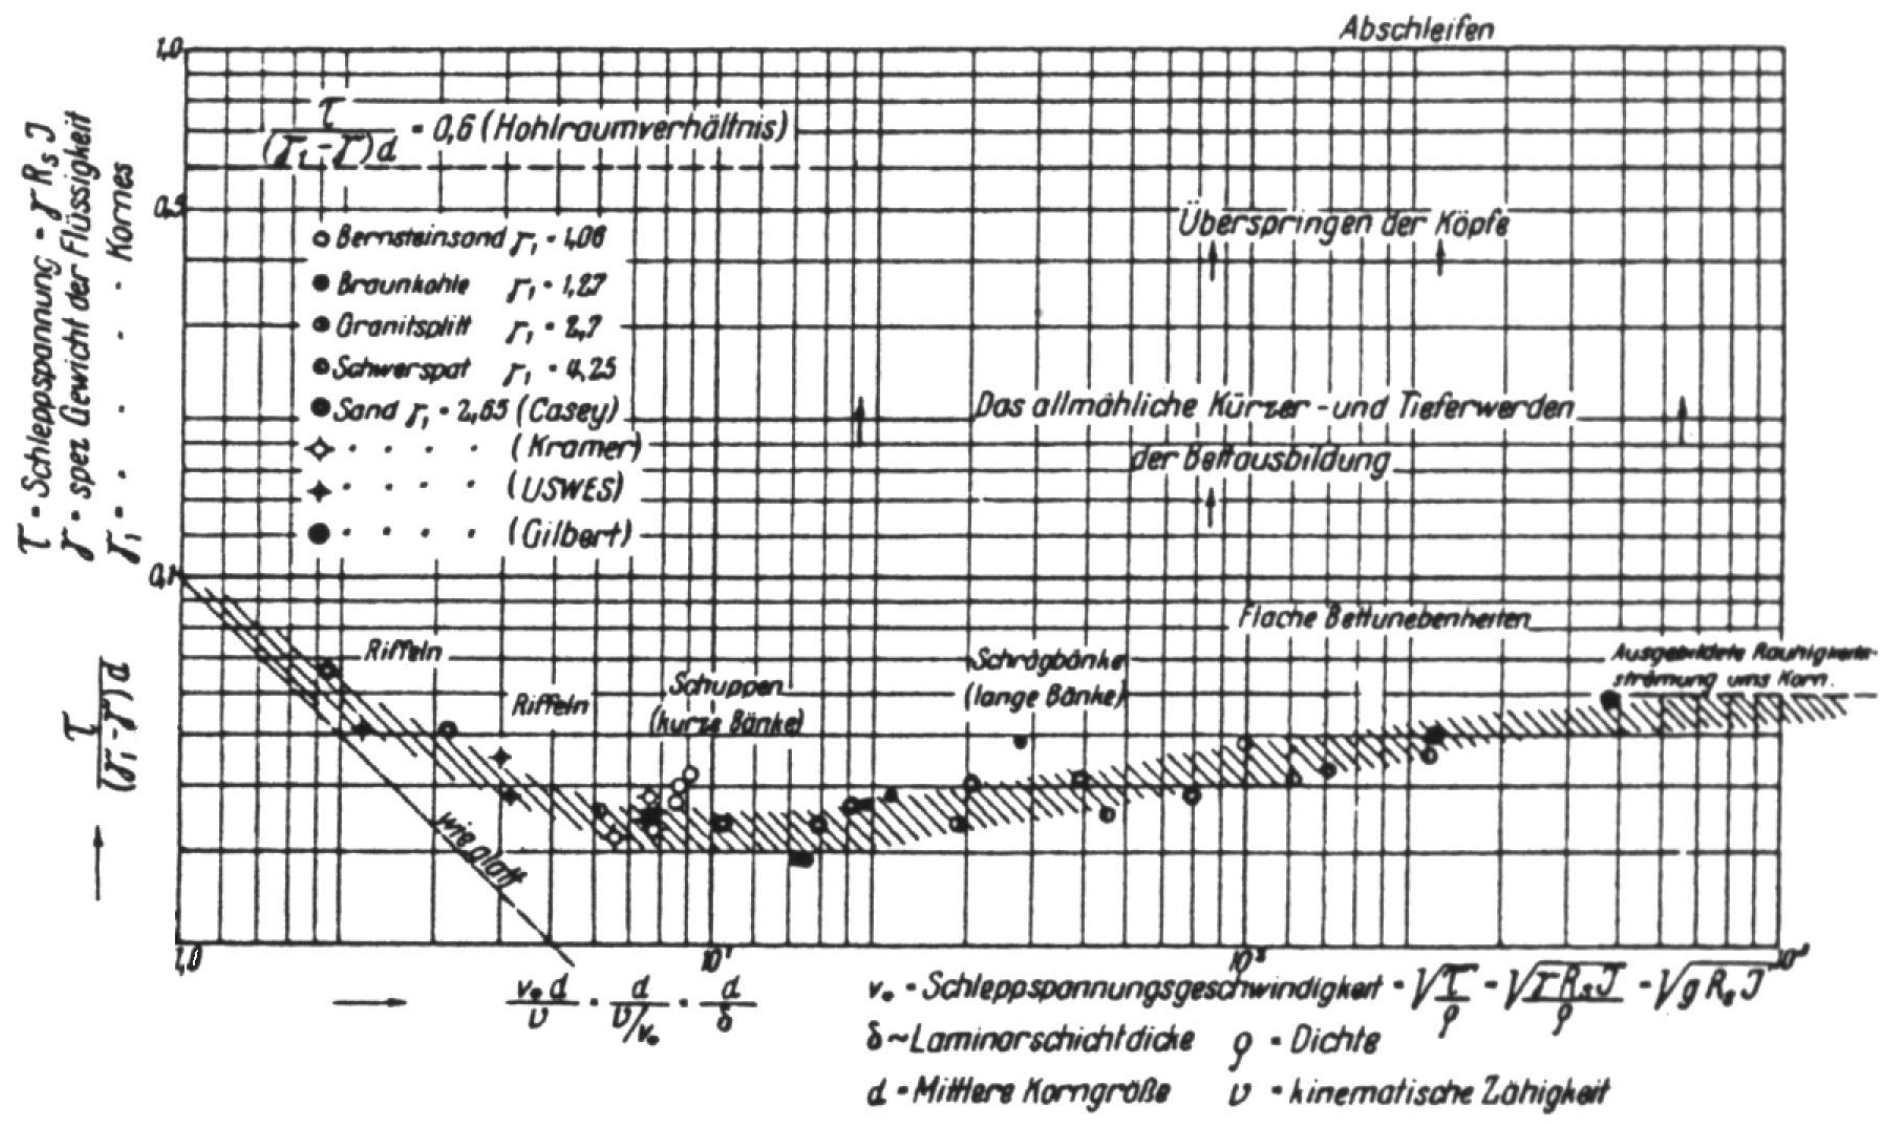 Abschleifen
1,0
τ / (γ₁-γ)d = 0,6 (Hohlraumverhältnis)
τ = Schleppspannung = γ R_s J
γ = spez Gewicht der Flüssigkeit
γ₁ = " " " Kornes
0,5
Überspringen der Köpfe
○ Bernsteinsand γ₁ = 1,06
● Braunkohle γ₁ = 1,27
Granitsplitt γ₁ = 2,7
Schwerspat γ₁ = 4,25
Sand γ₁ = 2,65 (Casey)
" " " " (Kramer)
" " " " (USWES)
" " " " (Gilbert)
Das allmähliche Kürzer- und Tieferwerden
der Bettausbildung
0,1
Flache Bettunebenheiten
Riffeln
Riffeln
Schuppen
(kurze Bänke)
Schrägbänke
(lange Bänke)
Ausgebildete Rauhigkeits-
strömung ums Korn.
τ / (γ₁-γ)d
wie glatt
1,0
10¹
10²
10³
v* d / ν = d / ν/v* = d / δ
v* = Schleppspannungsgeschwindigkeit = √τ/ρ = √γ R_s J/ρ = √g R_s J
δ ~ Laminarschichtdicke ρ = Dichte
d = Mittlere Korngröße ν = kinematische Zähigkeit